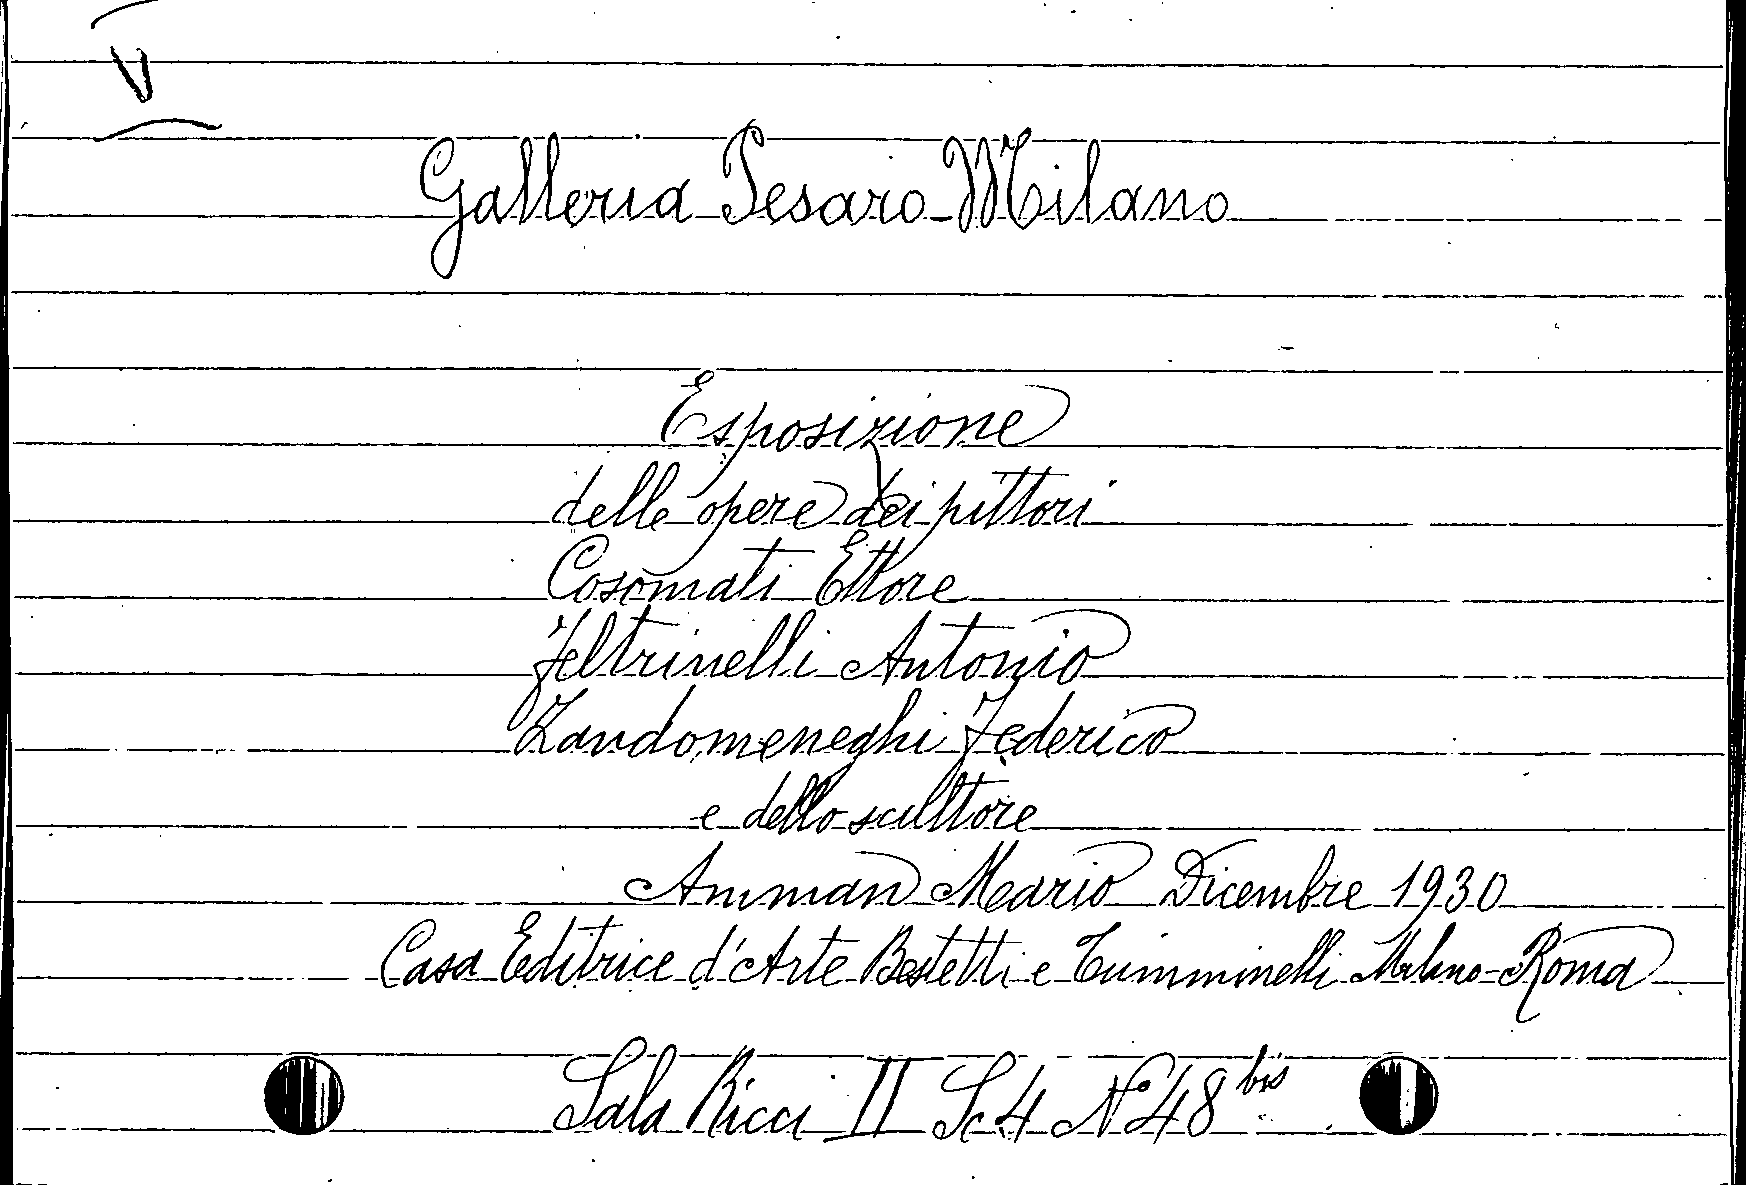 V
Galleria Pesaro-Milano
Esposizione
delle opere dei pittori
Cosomati Ettore
Feltrinelli Antonio
Zandomeneghi Federico
e dello scultore
Amman Mario Dicembre 1930
Casa Editrice d'Arte Bestetti e Tumminelli Milano-Roma
Sala Ricci II Sc 4 N° 48 bis